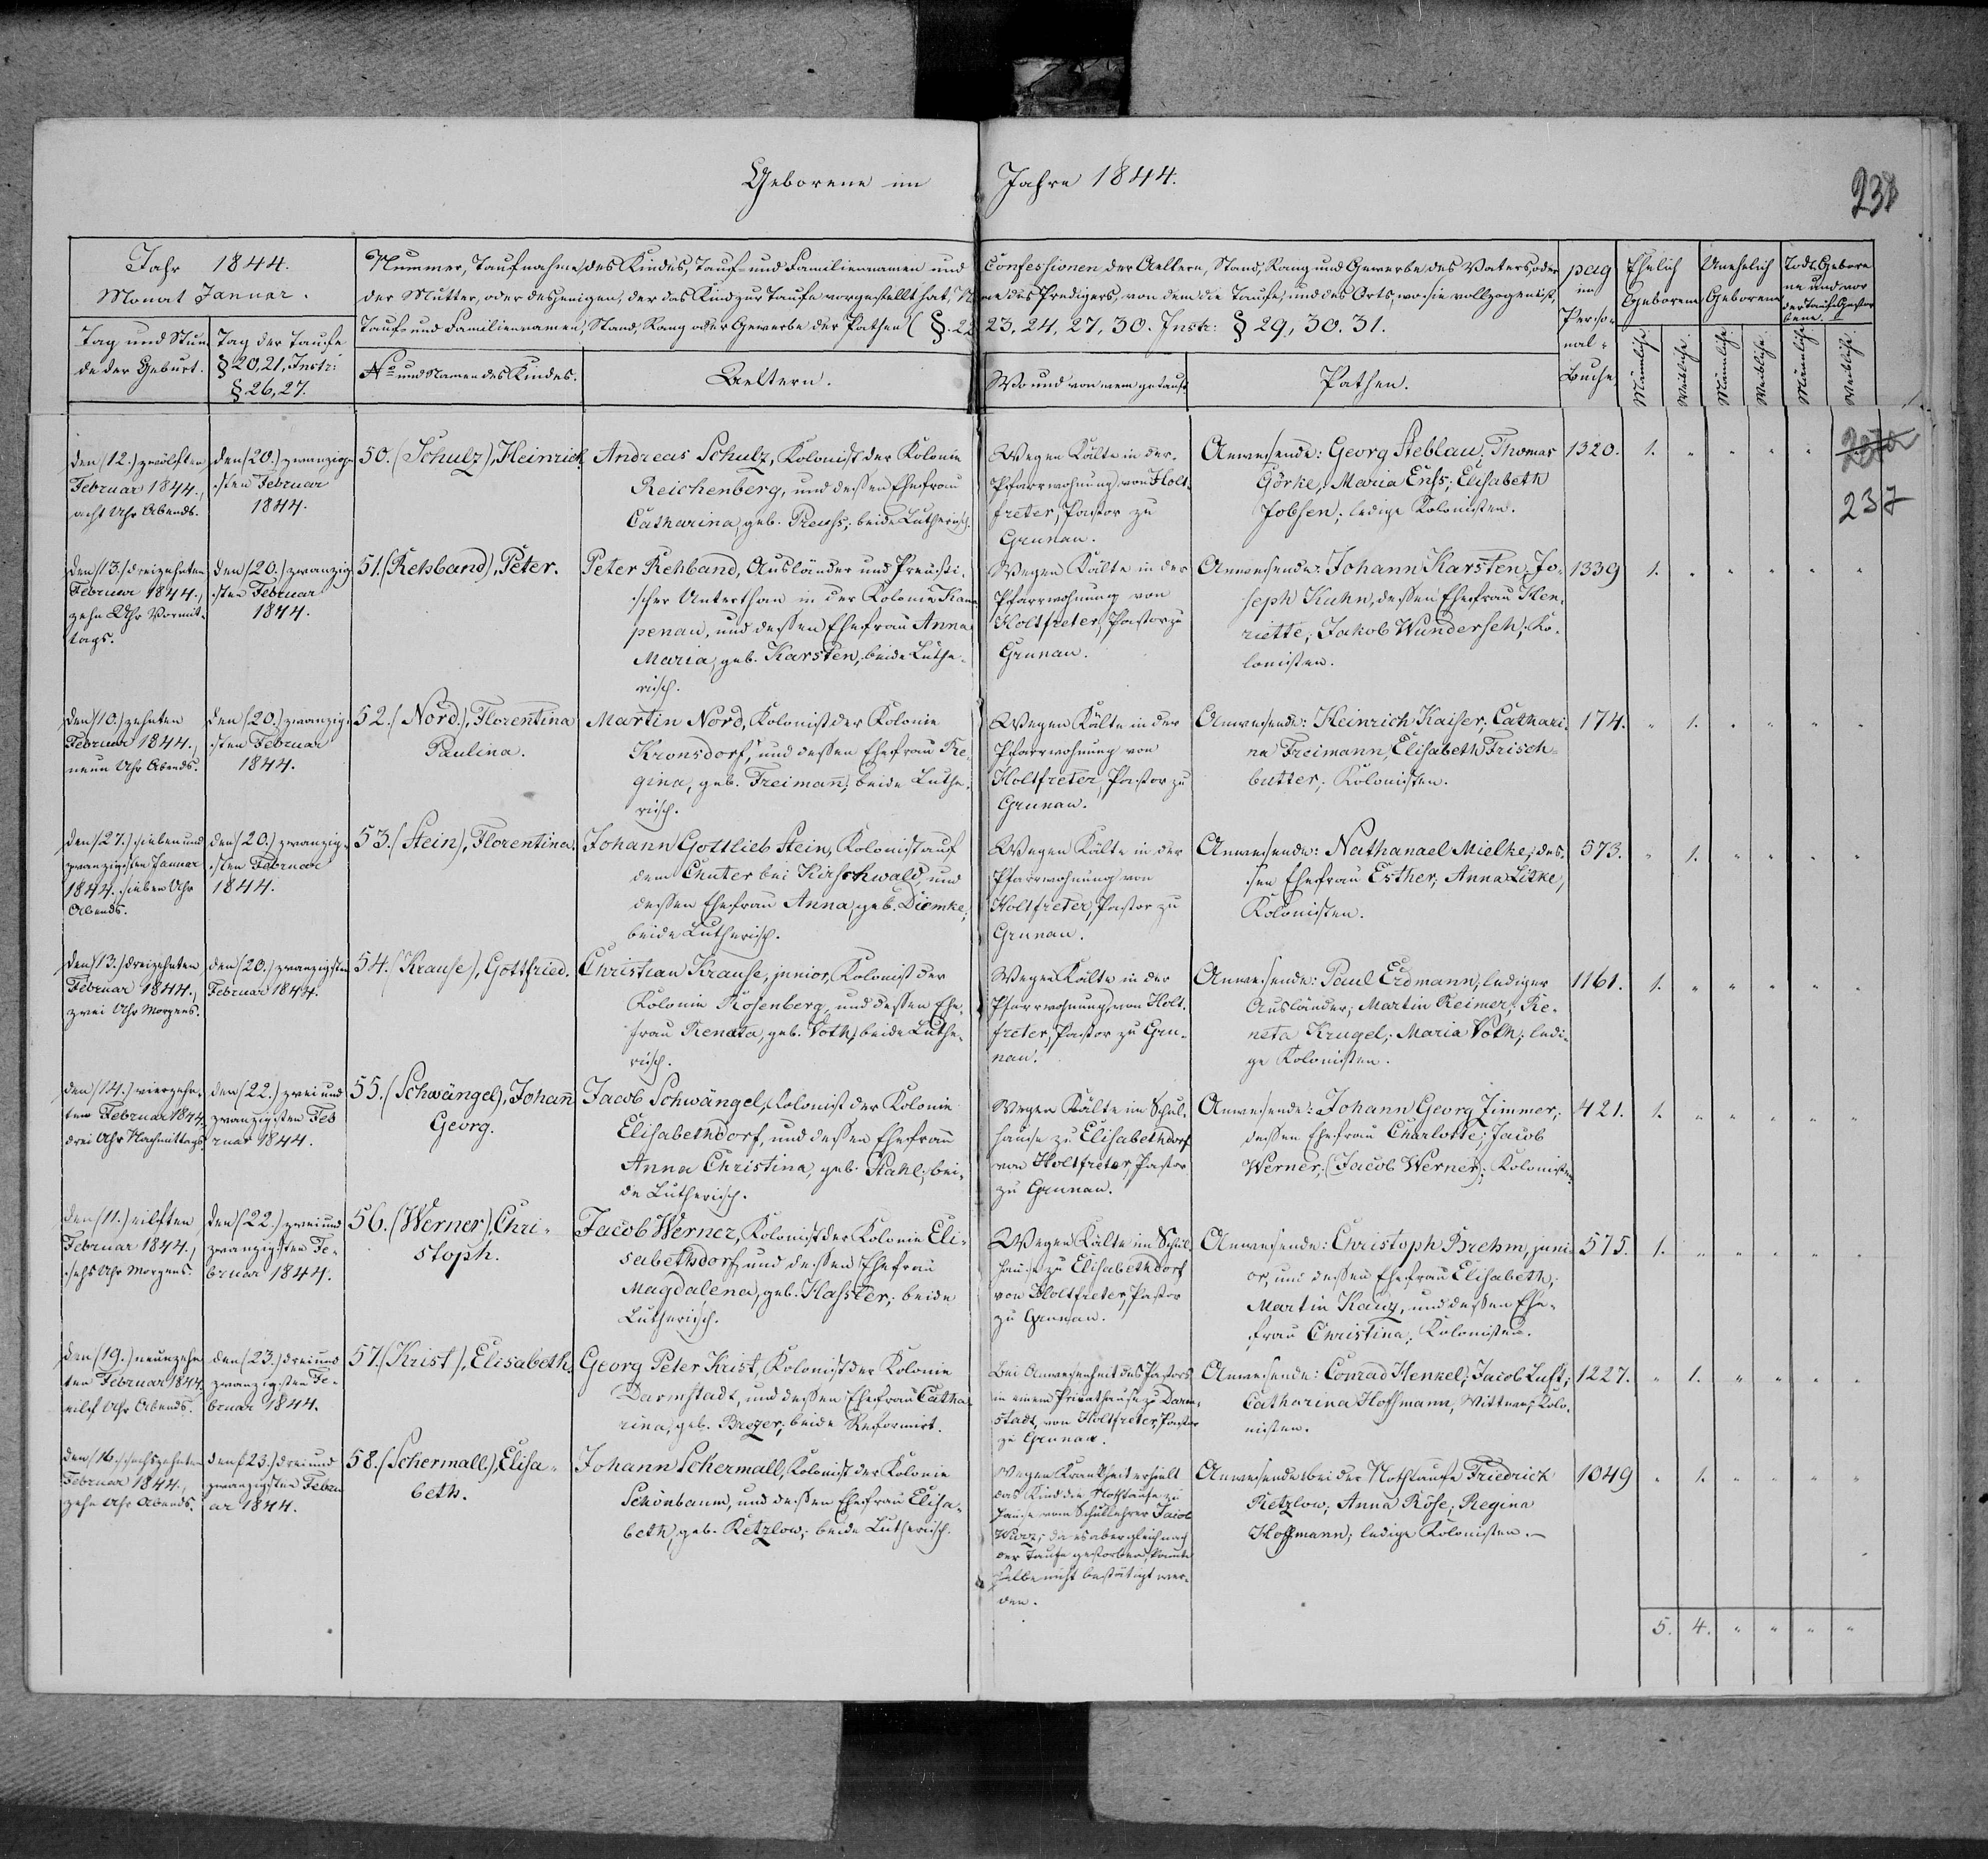 Geborene im Jahre 1844.
238
Jahr 1844.
Monat Januar.
Tag und Stun-
de der Geburt.
Tag der Taufe
§ 20, 21, Instr:
§ 26, 27.
Nummer, Taufnahme des Kindes, Tauf- und Familiennamen und Confessionen der Aeltern, Stand, Rang und Gewerbe des Vaters, oder
der Mutter, oder desjenigen, der das Kind zur Taufe vorgestellt hat, Na me des Predigers, von dem die Taufe, und des Orts, wo sie vollzogen ist,
Tauf- und Familiennamen, Stand, Rang oder Gewerbe der Pathen (§. 22 23, 24, 27, 30. Instr: § 29, 30. 31.
No und Namen des Kindes.
Aeltern.
Wo und von wem getauft.
Pathen.
pag
im
Perso-
nal-
Buche
Ehelich
Geborene
Unehelich
Geborene
Todt Gebore
ne und vor
der Taufe Gestor
bene.
Männliche.
Weibliche.
Männliche.
Weibliche.
Männliche.
Weibliche.
237
den (12.) zwölften
Februar 1844.,
acht Uhr Abends.
den (20.) zwanzig-
sten Februar
1844.
50. (Schulz), Heinrich
Andreas Schulz, Kolonist der Kolonie
Reichenberg, und dessen Ehefrau
Catharina, geb. Preuss; beide Lutherisch.
Wegen Kälte in der
Pfarrwohnung von Holt-
freter, Pastor zu
Grunau.
Anwesende: Georg Steblau, Thomas
Görke, Maria Enss; Elisabeth
Jobsen; ledige Kolonisten.
1320. 1. " " " "
den (13.) dreizehnten
Februar 1844.,
zehn Uhr Vormit-
tags.
den (20.) zwanzig-
sten Februar
1844.
51. (Rehband), Peter.
Peter Rehband, Ausländer und Preussi-
scher Unterthan in der Kolonie Kam
penau, und dessen Ehefrau Anna
Maria, geb. Karsten, beide Luthe-
risch.
Wegen Kälte in der
Pfarrwohnung von
Holtfreter, Pastor zu
Grunau.
Anwesende: Johann Karsten; Jo-
seph Kuhn, dessen Ehefrau Hen-
riette; Jakob Wunderseh; Ko-
lonisten.
1339 1. " " " " "
den (10.) zehnten
Februar 1844.,
neun Uhr Abends.
den (20.) zwanzig-
sten Februar
1844.
52. (Nord), Florentina
Paulina.
Martin Nord, Kolonist der Kolonie
Kronsdorf, und dessen Ehefrau Re-
gina, geb. Freimann; beide Luthe-
risch.
Wegen Kälte in der
Pfarrwohnung von
Holtfreter, Pastor zu
Grunau.
Anwesende: Heinrich Kaiser, Cathari-
na Freimann, Elisabeth Frisch-
butter; Kolonisten.
174. " 1. " " " "
den (27.) sieben und
zwanzigsten Januar
1844. sieben Uhr
Abends.
den (20.) zwanzig-
sten Februar
1844.
53. (Stein), Florentina.
Johann Gottlieb Stein, Kolonist auf
dem Chuter bei Kirschwald, und
dessen Ehefrau Anna, geb. Diemke;
beide Lutherisch.
Wegen Kälte in der
Pfarrwohnung von
Holtfreter, Pastor zu
Grunau.
Anwesende: Nathanael Mielke, des-
sen Ehefrau Esther; Anna Litke,
Kolonisten.
573. " 1. " " " "
den (13.) dreizehnten
Februar 1844.,
zwei Uhr Morgens.
den (20.) zwanzigsten
Februar 1844.
54. (Krause), Gottfried.
Christian Krause, junior, Kolonist der
Kolonie Rosenberg, und dessen Ehe-
frau Renata, geb. Voth, beide Luthe-
risch.
Wegen Kälte in der
Pfarrwohnung, von Holt-
freter, Pastor zu Gru-
nau.
Anwesende: Paul Erdmann, lediger
Ausländer; Martin Reimer, Re-
neta Krugel; Maria Voth; ledi-
ge Kolonisten.
1161. 1. " " " " "
den (14.) vierzehn-
ten Februar 1844
drei Uhr Nachmittags.
den (22.) zwei und
zwanzigsten Feb
ruar 1844.
55. (Schwängel), Johann
Georg.
Jacob Schwängel, Kolonist der Kolonie
Elisabethdorf, und dessen Ehefrau
Anna Christina, geb. Stahl; bei-
de Lutherisch.
Wegen Kälte im Schul-
hause zu Elisabethdorf
von Holtfreter, Pastor
zu Grunau.
Anwesende: Johann Georg Zimmer,
dessen Ehefrau Charlotte; Jacob
Werner, (Jacob Werner); Kolonisten.
421. 1. " " " " "
den (11.) eilften
Februar 1844.,
sechs Uhr Morgens.
den (22.) zwei und
zwanzigsten Fe-
bruar 1844.
56. (Werner), Chri-
stoph.
Jacob Werner, Kolonist der Kolonie Eli-
sabethdorf, und dessen Ehefrau
Magdalena, geb. Hassler; beide
Lutherisch.
Wegen Kälte im Schul-
hause zu Elisabethdorf
von Holtfreter, Pastor
zu Grunau.
Anwesende: Christoph Brehm, juni-
or, und dessen Ehefrau Elisabeth;
Martin Kauz, und dessen Ehe-
frau Christina; Kolonisten.
575. 1. " " " " "
den (19.) neunzehn
ten Februar 1844.
eilf Uhr Abends.
den (23.) drei und
zwanzigsten Fe-
bruar 1844.
57. (Krist), Elisabeth.
Georg Peter Krist, Kolonist der Kolonie
Darmstadt, und dessen Ehefrau Catha-
rina, geb. Brezer; beide Reformirt.
Bei Anwesenheit des Pastors
in einem Privathause zu Darm-
stadt, von Holtfreter, Pastor
zu Grunau.
Anwesende: Conrad Henkel, Jacob Luft;
Catharina Hoffmann, Wittwe; Kolo-
nisten.
1227. " 1. " " " "
den (16.) sechszehnten
Februar 1844.,
zehn Uhr Abends.
den (23.) drei und
zwanzigsten Febru
ar 1844.
58. (Schermall), Elisa-
beth.
Johann Schermall, Kolonist der Kolonie
Schönbaum, und dessen Ehefrau Elisa-
beth, geb. Retzlow; beide Lutherisch.
Wegen Krankheit erhielt
das Kind die Nothtaufe zu
Hause vom Schullehrer Jacob
Wurz; da es aber gleich nach
der Taufe gestorben, konnte
selbe nicht bestätigt wer-
den.
Anwesende bei der Nothtaufe Friedrich
Retzlow; Anna Röse; Regina
Hoffmann; ledige Kolonisten.
1049 " 1. " " " "
5. 4. " " " "